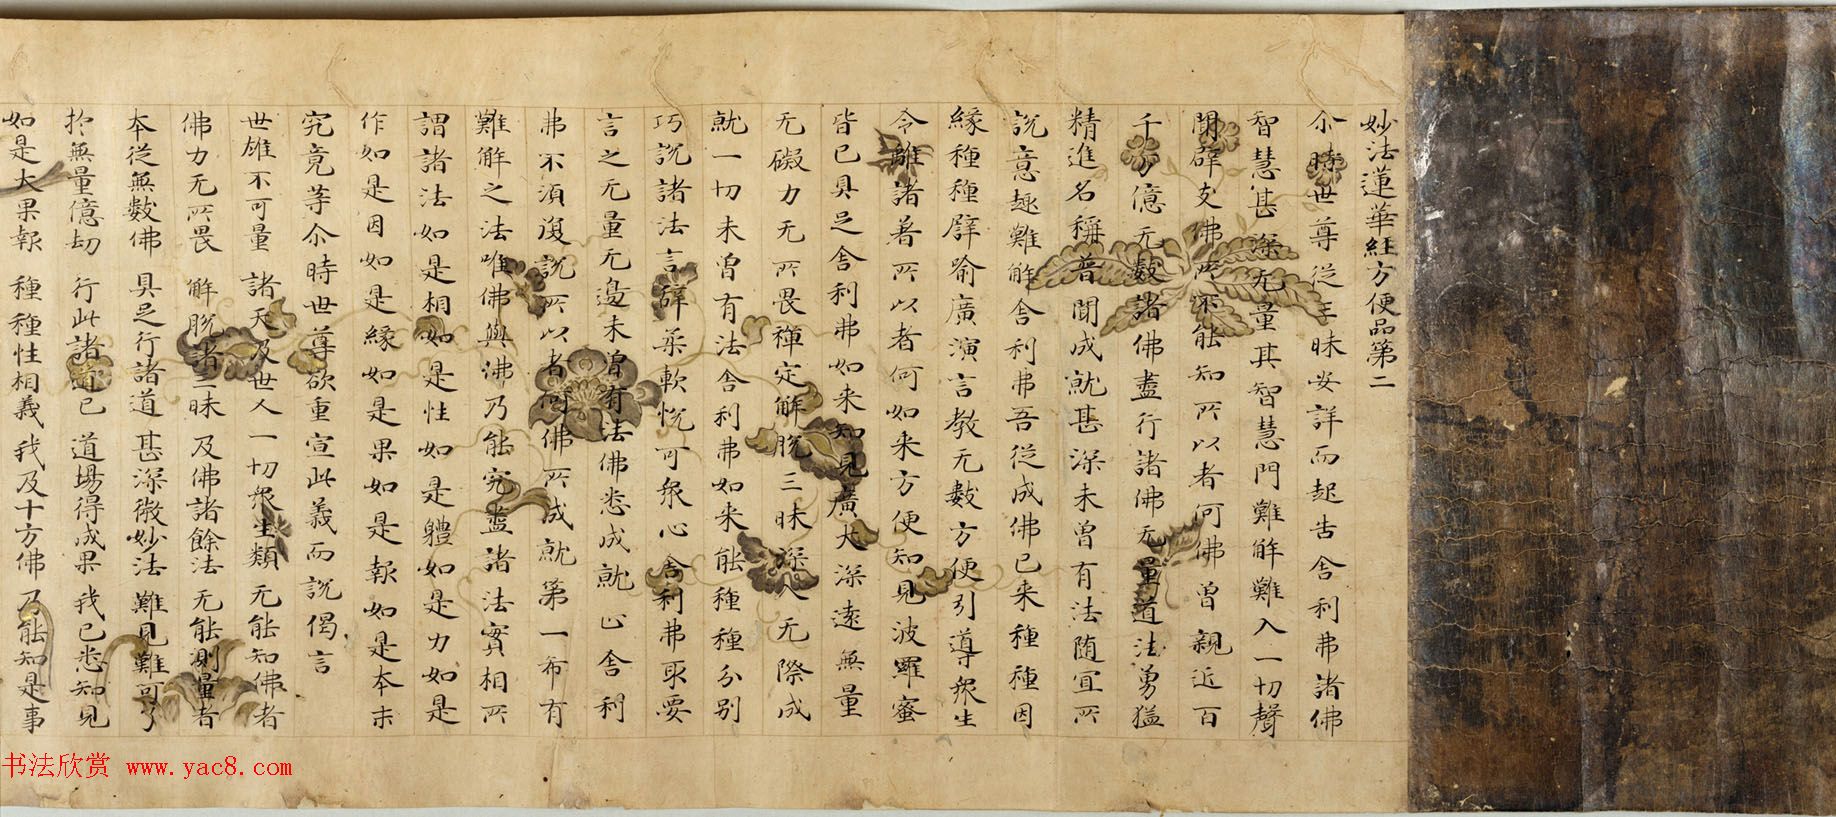 妙法蓮華經方便品第二
尒時世尊從三昧安詳而起告舍利弗諸佛
智慧甚深无量其智慧門難解難入一切聲
聞辟支佛所不能知所以者何佛曾親近百
千万億无數諸佛盡行諸佛无量道法勇猛
精進名稱普聞成就甚深未曾有法随宜所
説意趣難解舍利弗吾從成佛已来種種因
緣種種辟喻廣演言教无數方便引導衆生
令離諸著所以者何如来方便知見波羅蜜
皆已具足舍利弗如来知見廣大深遠無量
无礙力无所畏禪定解脱三昧深入无際成
就一切未曾有法舍利弗如来能種種分別
巧説諸法言辞柔軟悦可衆心舍利弗取要
言之无量无邊未曾有法佛悉成就止舍利
弗不須復説所以者何佛所成就第一希有
難解之法唯佛與佛乃能究盡諸法實相所
謂諸法如是相如是性如是體如是力如是
作如是因如是緣如是果如是報如是本末
究竟等尒時世尊欲重宣此義而説偈言
世雄不可量 諸天及世人 一切衆生類 无能知佛者
佛力无所畏 解脱諸三昧 及佛諸餘法 无能測量者
本從無數佛 具足行諸道 甚深微妙法 難見難可了
於無量億劫 行此諸道已 道場得成果 我已悉知見
如是大果報 種種性相義 我及十方佛 乃能知是事
书法欣赏 www.yac8.com